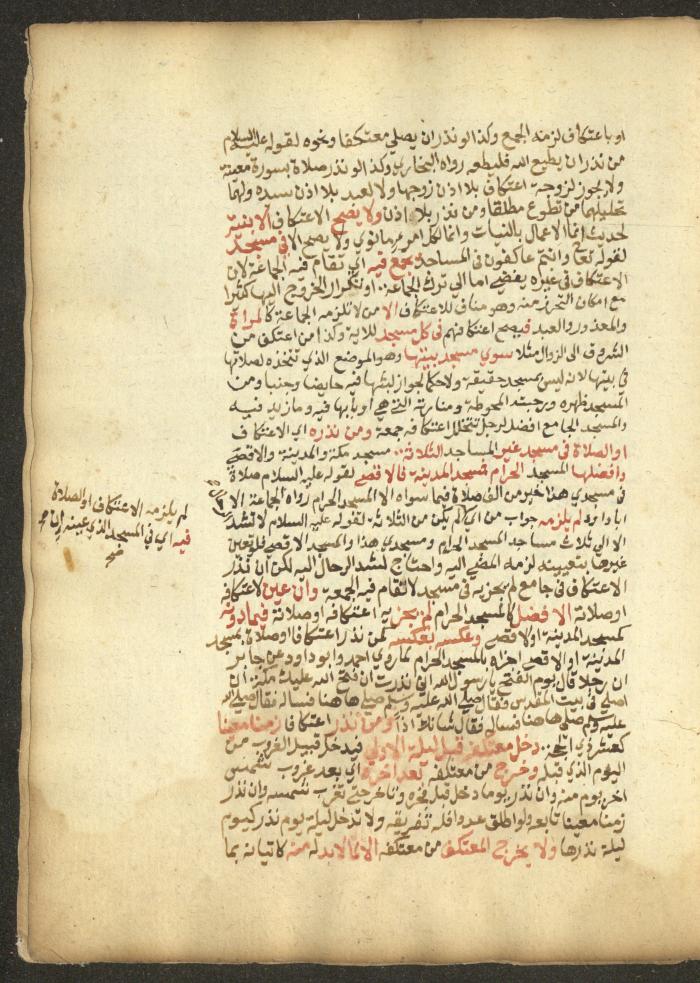 او باعتكاف لزمه الجمع وكذا لو نذر ان يصلي معتكفا ونحوه لقوله عليه السلام
من نذر ان يطيع الله فليطعه رواه البخاري وكذا لو نذر صلاة بسورة معينة
ولا يجوز لزوجة اعتكاف بلا اذن زوجها ولا لعبد بلا اذن سيده ولهما
تحليلهما من تطوع مطلقا ومن نذر بلا اذن ولا يصح الاعتكاف الا بنية
لحديث انما الاعمال بالنيات وانما لكل امرء ما نوى ولا يصح الا في مسجد
لقوله تعالى وانتم عاكفون في المساجد يجمع فيه اي تقام فيه الجماعة لان
الاعتكاف في غيره يفضي اما الى ترك الجماعة او تكرار الخروج اليها كثيرا
مع امكان التحرز منه وهو مناف للاعتكاف الا من لا تلزمه الجماعة كالمراة
والمعذور والعبد فيصح اعتكافهم في كل مسجد للاية وكذا من اعتكف من
الشروق الى الزوال مثلا سوى مسجد بيتها وهو الموضع الذي تتخذه لصلاتها
في بيتها لانه ليس بمسجد حقيقة ولا حكما لجواز لبثها فيه حايضا وجنبا ومن
المسجد ظهره ورحبته المحوطة ومنارته التي هي او بابها فيه وما زيد فيه
والمسجد الجامع افضل لرجل تخلل اعتكافه جمعة ومن نذره اي الاعتكاف
او الصلاة في مسجد غير المساجد الثلاثة مسجد مكة والمدينة والاقصى
وافضلها المسجد الحرام فمسجد المدينة فالاقصى لقوله عليه السلام صلاة
في مسجدي هذا خير من الف صلاة فيما سواه الا المسجد الحرام رواه الجماعة الا
ابا داود لم يلزمه جواب من اي لم يكن من الثلاثة لقوله عليه السلام لا تشد
الا الى ثلاث مساجد المسجد الحرام ومسجدي هذا والمسجد الاقصى فلو تعين
غيرها بتعيينه لزمه المضي اليه واحتاج لشد الرحال اليه لكن ان نذر
الاعتكاف في جامع لم يجزيه في مسجد لا تقام فيه الجمعة وان عين لاعتكافه
او صلاته الافضل كالمسجد الحرام لم يجز به اعتكافه او صلاته فيما دونه
كمسجد المدينة او الاقصى وعكسه بعكسه فمن نذر اعتكافا او صلاة بمسجد
المدينة او الاقصى اجزاه بالمسجد الحرام لما روى احمد وابو داود عن جابر
ان رجلا قال يوم الفتح يا رسول الله اني نذرت ان فتح الله عليك مكة ان
اصلي في بيت المقدس فقال صلى الله عليه وسلم صلي ها هنا فساله فقال صلى الله
عليه وسلم صلي ها هنا فساله فقال شانك اذا ومن نذر اعتكافا زمنا معينا
كعشر ذي الحجة دخل معتكفه قبل ليلته الاولى فيدخل قبيل الغروب من
اليوم الذي قبله وخرج من معتكفه بعد اخره اي بعد غروب شمس
اخر يوم منه وان نذر يوما دخل قبل فجره وتاخر حتى تغرب شمسه وان نذر
زمنا معينا تابعه ولو اطلق عددا فله تفريقه ولا تدخل ليلة يوم نذر كيوم
ليلة نذرها ولا يخرج المعتكف من معتكفه الا لما لا بد له منه كاتيانه بما
لم يلزمه الاعتكاف او الصلاة
فيه اي في المسجد الذي عينه ان
صح